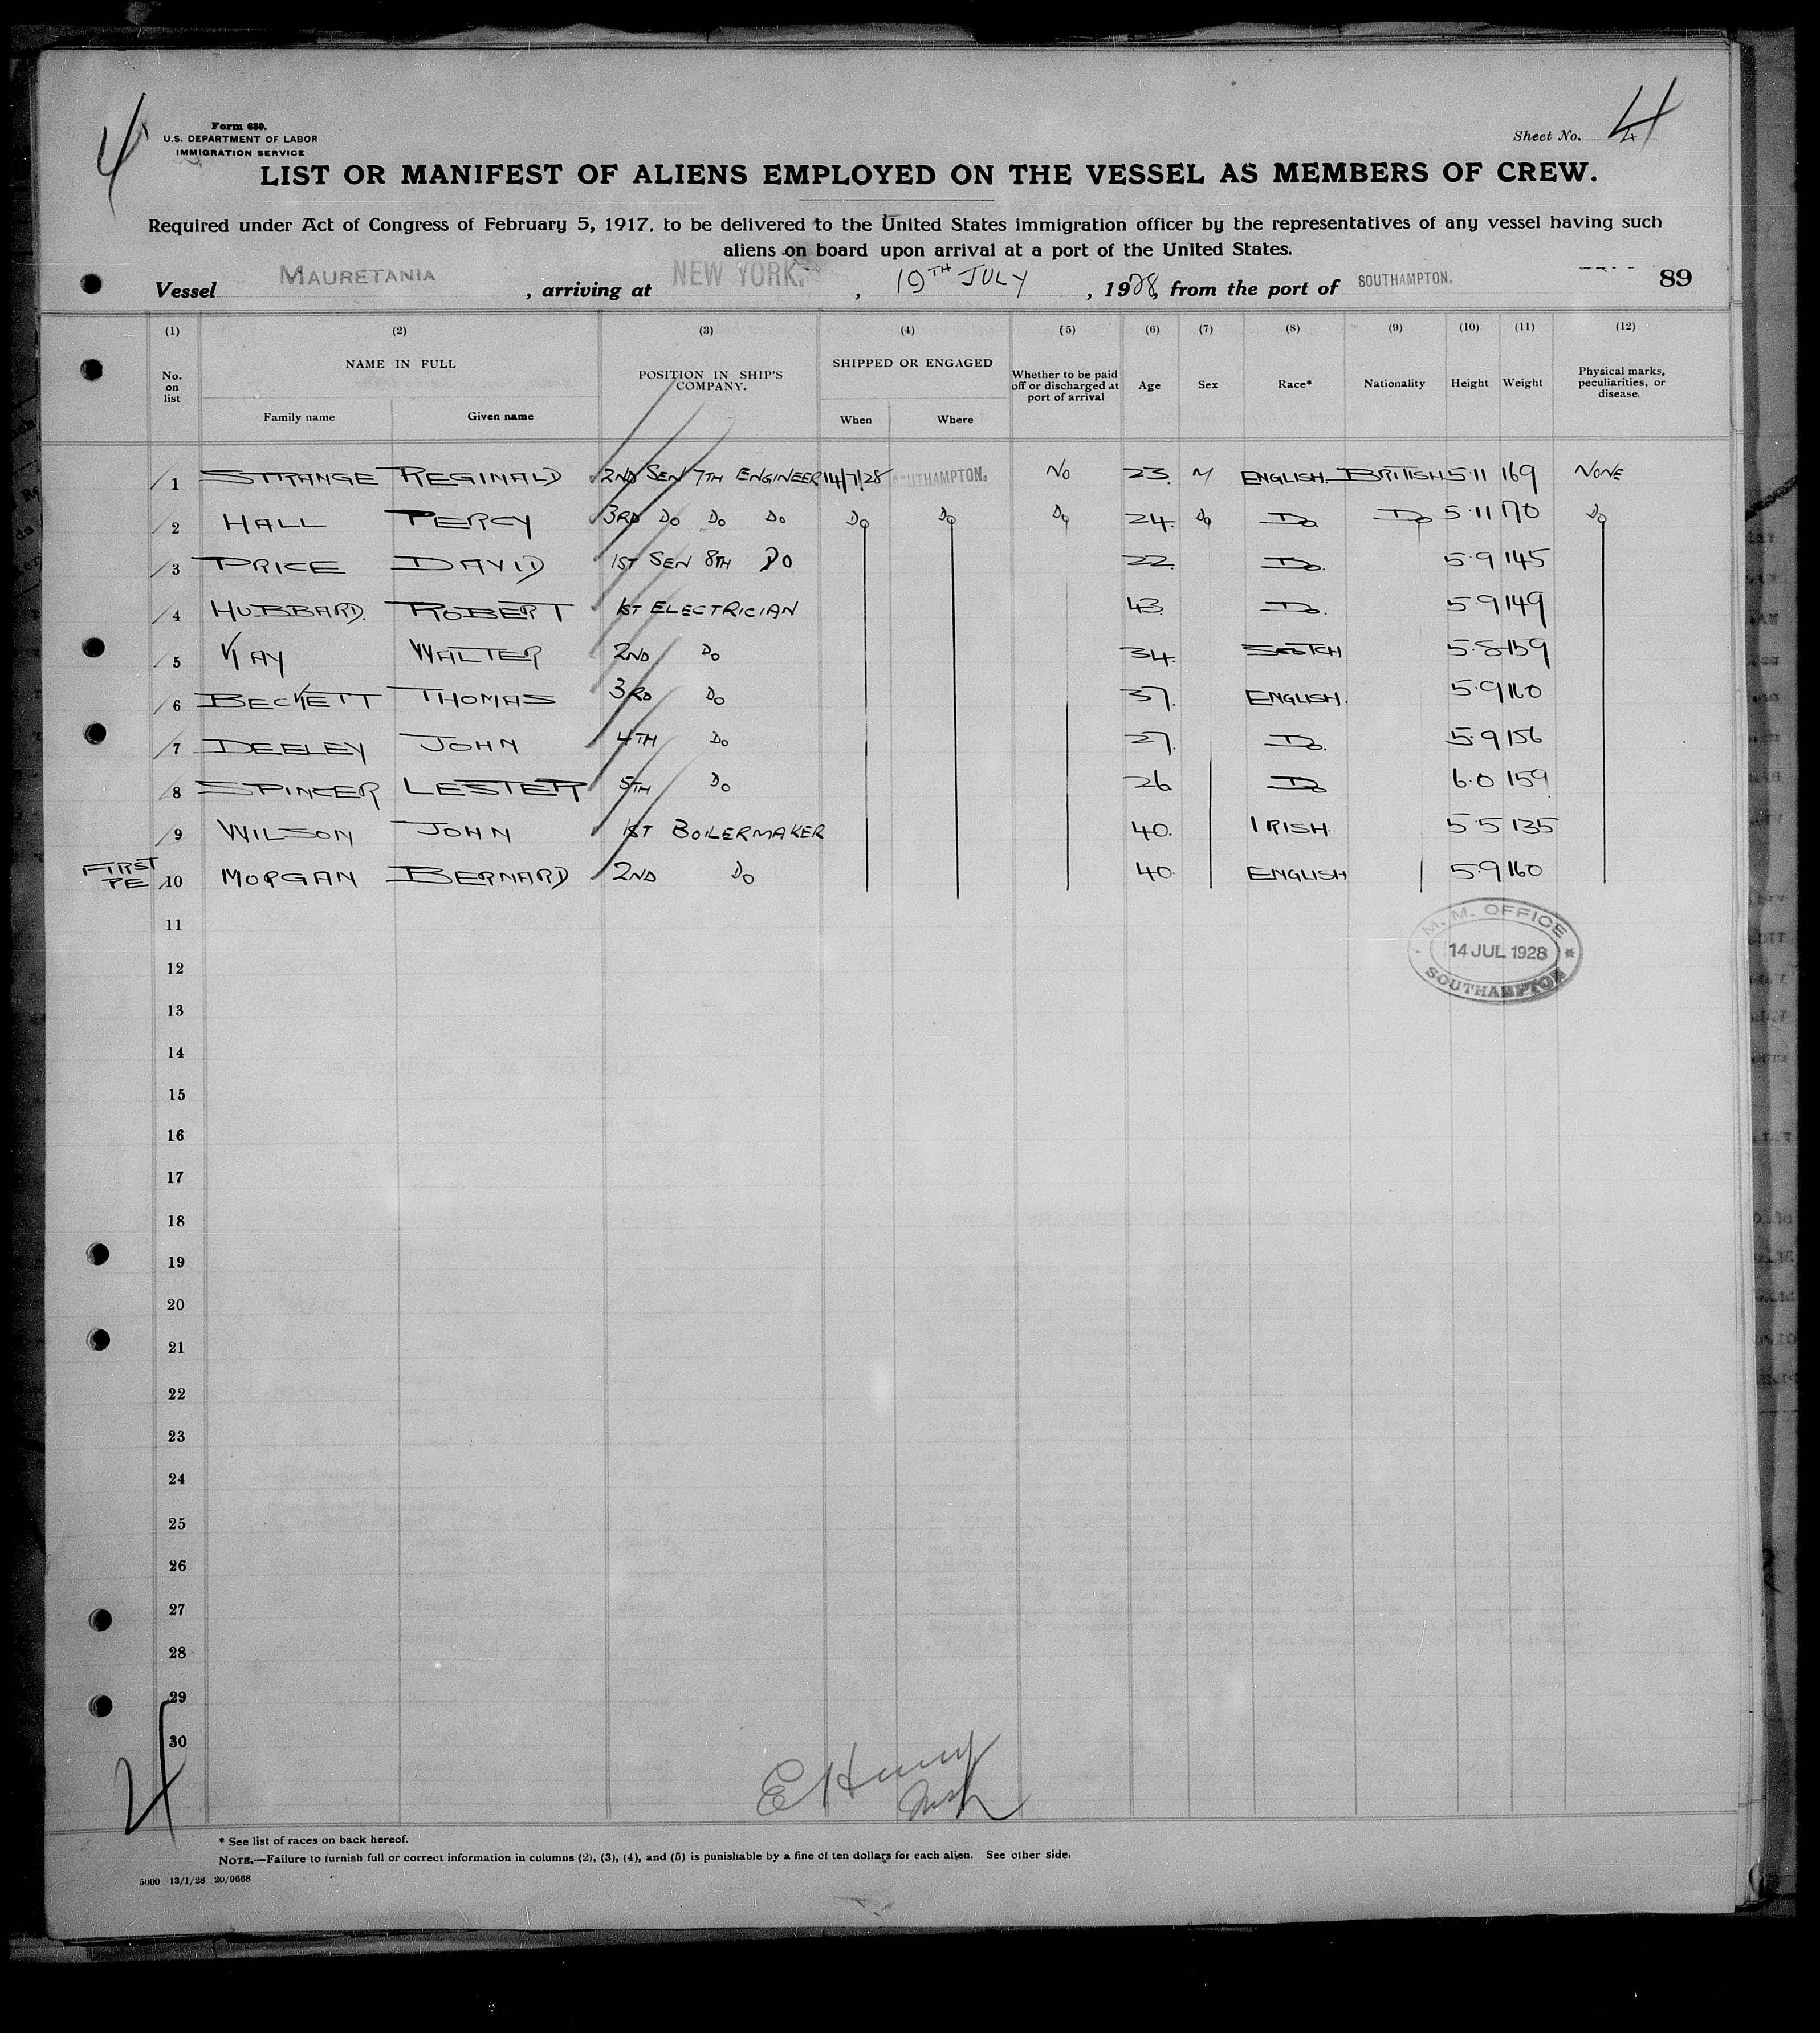 4
Form 680.
U.S. DEPARTMENT OF LABOR
IMMIGRATION SERVICE
Sheet No. 4
LIST OR MANIFEST OF ALIENS EMPLOYED ON THE VESSEL AS MEMBERS OF CREW.
Required under Act of Congress of February 5, 1917, to be delivered to the United States immigration officer by the representatives of any vessel having such
aliens on board upon arrival at a port of the United States.
Vessel MAURETANIA, arriving at NEW YORK., 19TH JULY, 1928, from the port of SOUTHAMPTON. 89
(1) (2) (3) (4) (5) (6) (7) (8) (9) (10) (11) (12)
No. on list NAME IN FULL POSITION IN SHIP'S COMPANY. SHIPPED OR ENGAGED Whether to be paid off or discharged at port of arrival Age Sex Race* Nationality Height Weight Physical marks, peculiarities, or disease.
Family name Given name When Where
1 STRANGE REGINALD 2ND SEN 7TH ENGINEER 14/7/28 SOUTHAMPTON. NO 23. M ENGLISH. BRITISH 5·11 169 NONE
2 HALL PERCY 3RD DO DO DO DO DO DO 24. DO DO DO 5·11 170 DO
3 PRICE DAVID 1ST SEN 8TH DO 22. DO. 5·9 145
4 HUBBARD. ROBERT 1ST ELECTRICIAN 43. DO. 5·9 149
5 KAY WALTER 2ND DO 34. SCOTCH 5·8 159
6 BECKETT THOMAS 3RD DO 37. ENGLISH. 5·9 160
7 DEELEY JOHN 4TH DO 27. DO. 5·9 156
8 SPINCER LESTER 5TH DO 26 DO 6·0 159
9 WILSON JOHN 1ST BOILERMAKER 40. IRISH. 5·5 135
FIRST
PE 10 MORGAN BERNARD 2ND DO 40. ENGLISH 5·9 160
11
M.M. OFFICE
14 JUL 1928
SOUTHAMPTON
12
13
14
15
16
17
18
19
20
21
22
23
24
25
26
27
28
29
30
4
* See list of races on back hereof.
NOTE.—Failure to furnish full or correct information in columns (2), (3), (4), and (5) is punishable by a fine of ten dollars for each alien. See other side.
5000 13/1/28 20/9668